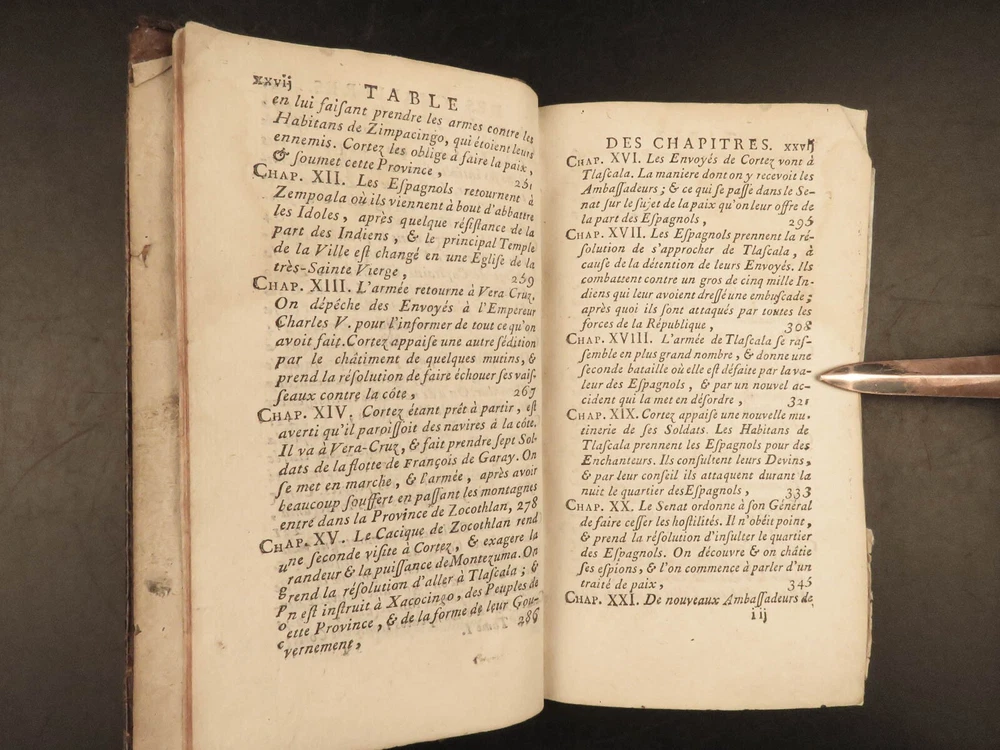 xxvij
TABLE
en lui faiſant prendre les armes contre les
Habitans de Zimpacingo, qui étoient leurs
ennemis. Cortez les oblige à faire la paix,
& ſoumet cette Province, 251
CHAP. XII. Les Eſpagnols retournent à
Zempoala où ils viennent à bout d'abbattre
les Idoles, après quelque réſiſtance de la
part des Indiens, & le principal Temple
de la Ville eſt changé en une Egliſe de la
très-Sainte Vierge, 259
CHAP. XIII. L'armée retourne à Vera Cruz.
On dépêche des Envoyés à l'Empereur
Charles V. pour l'informer de tout ce qu'on
avoit fait. Cortez appaiſe une autre ſédition
par le châtiment de quelques mutins, &
prend la réſolution de faire échouer ſes vaiſ-
ſeaux contre la côte, 267
CHAP. XIV. Cortez étant prêt à partir, eſt
averti qu'il paroiſſoit des navires à la côte.
Il va à Vera-Cruz, & fait prendre ſept Sol-
dats de la flotte de François de Garay. On
ſe met en marche, & l'armée, après avoir
beaucoup ſouffert en paſſant les montagnes
entre dans la Province de Zocothlan, 278
CHAP. XV. Le Cacique de Zocothlan rend
une ſeconde viſite à Cortez, & exagere la
randeur & la puiſſance de Montezuma. On
grend la réſolution d'aller à Tlaſcala; &
Pn eſt inſtruit à Xacocingo, des Peuples de
oette Province, & de la forme de leur Gou-
cvernement, 286
Tome I.
DES CHAPITRES. xxvij
CHAP. XVI. Les Envoyés de Cortez vont à
Tlaſcala. La maniere dont on y recevoit les
Ambaſſadeurs; & ce qui ſe paſſe dans le Se-
nat ſur le ſujet de la paix qu'on leur offre de
la part des Eſpagnols, 295
CHAP. XVII. Les Eſpagnols prennent la ré-
ſolution de s'approcher de Tlaſcala, à
cauſe de la détention de leurs Envoyés. Ils
combattent contre un gros de cinq mille In-
diens qui leur avoient dreſſé une embuſcade;
après quoi ils ſont attaqués par toutes les
forces de la République, 308
CHAP. XVIII. L'armée de Tlaſcala ſe raſ-
ſemble en plus grand nombre, & donne une
ſeconde bataille où elle eſt défaite par la va-
leur des Eſpagnols, & par un nouvel ac-
cident qui la met en déſordre, 321
CHAP. XIX. Cortez appaiſe une nouvelle mu-
tinerie de ſes Soldats. Les Habitans de
Tlaſcala prennent les Eſpagnols pour des
Enchanteurs. Ils conſultent leurs Devins,
& par leur conſeil ils attaquent durant la
nuit le quartier des Eſpagnols, 333
CHAP. XX. Le Senat ordonne à ſon Général
de faire ceſſer les hoſtilités. Il n'obéit point,
& prend la réſolution d'inſulter le quartier
des Eſpagnols. On découvre & on châtie
ſes eſpions, & l'on commence à parler d'un
traité de paix, 345
CHAP. XXI. De nouveaux Ambaſſadeurs de
iij